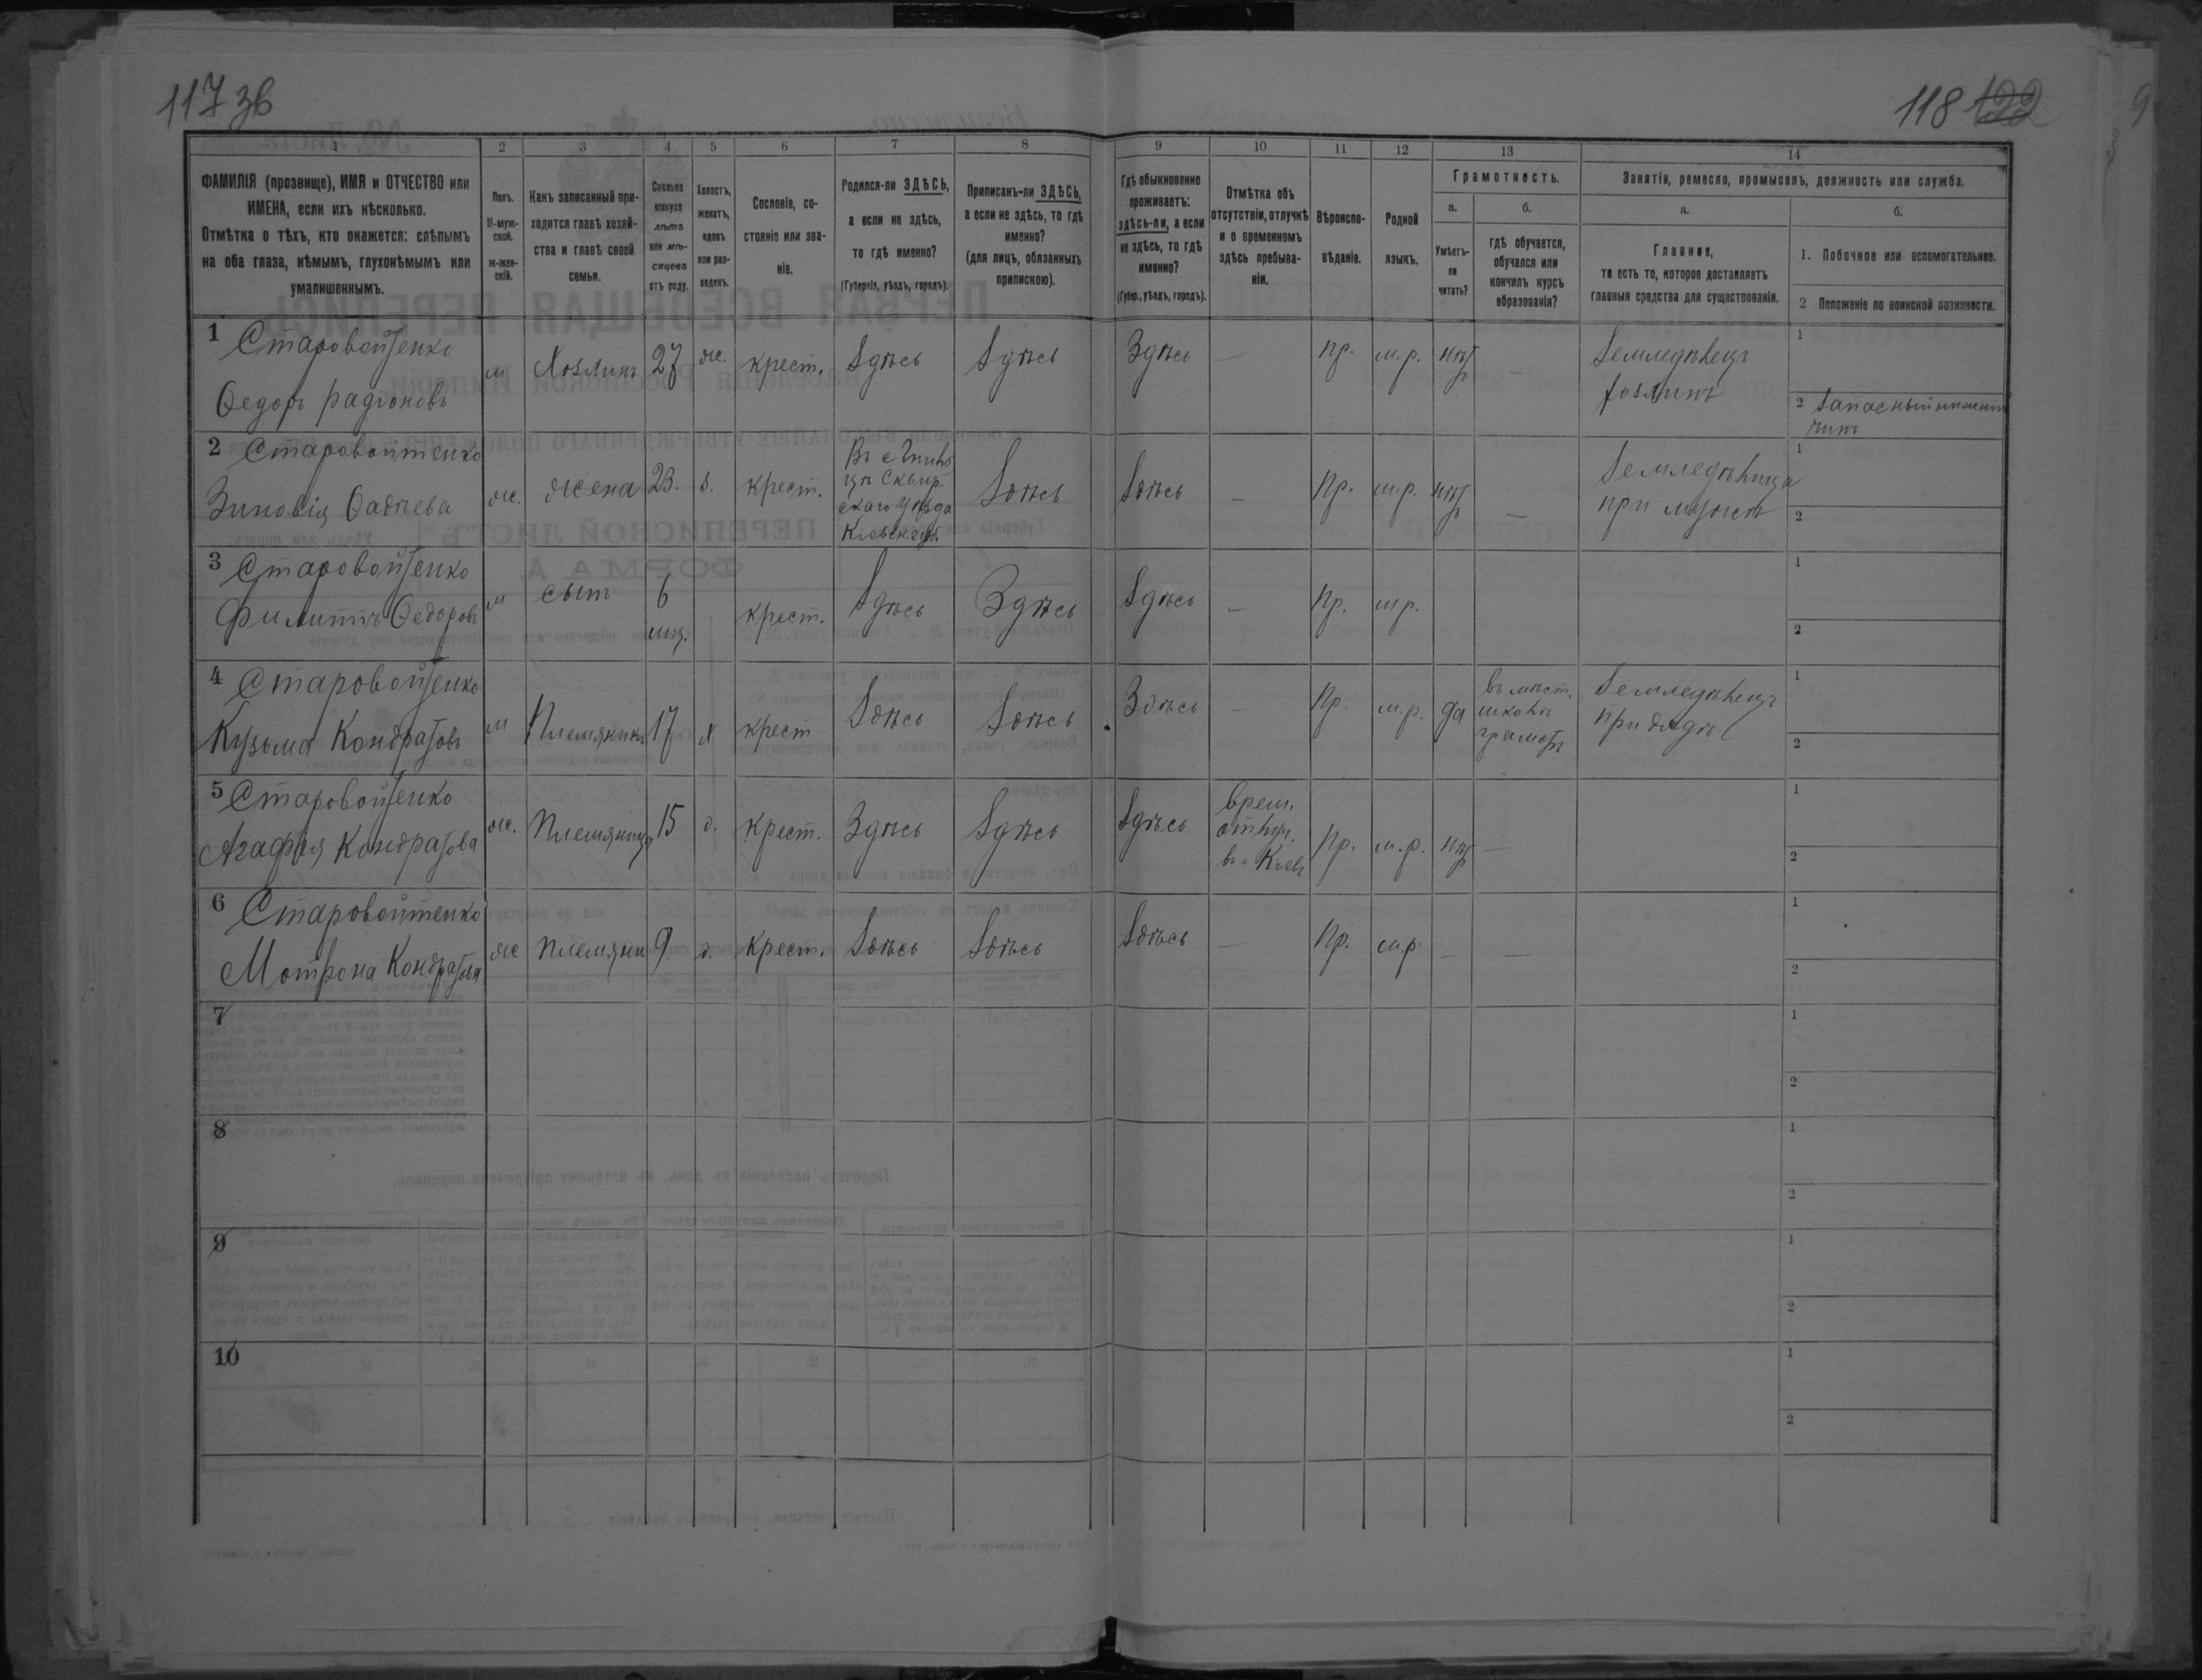 117 зв
118 122
1
2
3
4
5
6
7
8
9
10
11
12
13
14
ФАМИЛІЯ (прозвище), ИМЯ и ОТЧЕСТВО или
ИМЕНА, если ихъ нѣсколько.
Отмѣтка о тѣхъ, кто окажется: слѣпымъ
на оба глаза, нѣмымъ, глухонѣмымъ или
умалишеннымъ.
Полъ.
М-муж-
ской.
ж-жен-
скій.
Какъ записанный при-
ходится главѣ хозяй-
ства и главѣ своей
семьи.
Сколько
минуло
лѣтъ
или мѣ-
сяцевъ
отъ роду.
Холостъ,
женатъ,
вдовъ
или раз-
веденъ.
Сословіе, со-
стояніе или зва-
ніе.
Родился-ли ЗДѢСЬ,
а если не здѣсь,
то гдѣ именно?
(Губернія, уѣздъ, городъ).
Приписанъ-ли ЗДѢСЬ,
а если не здѣсь, то гдѣ
именно?
(для лицъ, обязанныхъ
припискою).
Гдѣ обыкновенно
проживаетъ:
здѣсь-ли, а если
не здѣсь, то гдѣ
именно?
(Губер., уѣздъ, городъ).
Отмѣтка объ
отсутствіи, отлучкѣ
и о временномъ
здѣсь пребыва-
ніи.
Вѣроиспо-
вѣданіе.
Родной
языкъ.
Грамотность.
а.
Умѣетъ-
ли
читать?
б.
гдѣ обучается,
обучался или
кончилъ курсъ
образованія?
Занятія, ремесло, промыселъ, должность или служба.
а.
Главное,
то есть то, которое доставляетъ
главныя средства для существованія.
б.
1. Побочное или вспомогательное.
2 Положеніе по воинской повинности.
1 Старовойтенко
Ѳедоръ Радіоновъ
м
Хозяинъ
27
ж.
крест.
Здѣсь
Здѣсь
Здѣсь
—
пр.
м.р.
нѣт
—
Земледѣлецъ
хозяинъ
1
2 Запасный нижній
чинъ
2 Старовойтенко
Зиновія Ѳадѣева
ж.
жена
23.
з.
крест.
Сквир
скаго уѣзда
Кіевск губ.
Здѣсь
Здѣсь
—
Пр.
м.р.
нѣт
—
Земледѣлица
при мужѣ
1
2
3 Старовойтенко
Филиппъ Ѳедоровъ
м
сынъ
6
мц.
крест.
Здѣсь
Здѣсь
Здѣсь
—
Пр.
мр.
1
2
4 Старовойтенко
Кузьма Кондратовъ
м
Племяникъ
17
х
крест
Здѣсь
Здѣсь
Здѣсь
—
Пр.
м.р.
да
въ мѣст.
школѣ
грамоты
Земледѣлецъ
при дядѣ
1
2
5 Старовойтенко
Агафія Кондратова
ж.
Племяница
15
д.
крест.
Здѣсь
Здѣсь
Здѣсь
врем.
отлуч.
въ г Кіевъ
Пр.
м.р.
нѣт
—
1
2
6 Старовойтенко
Мотрона Кондратова
ж
племяни
9
д.
крест.
Здѣсь
Здѣсь
Здѣсь
—
Пр.
м.р
—
—
1
2
7
1
2
8
1
2
9
1
2
10
1
2